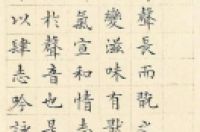 聲長而翫之
變滋味有猒
氣宣和情志
扵聲音也是
以肆志吟詠